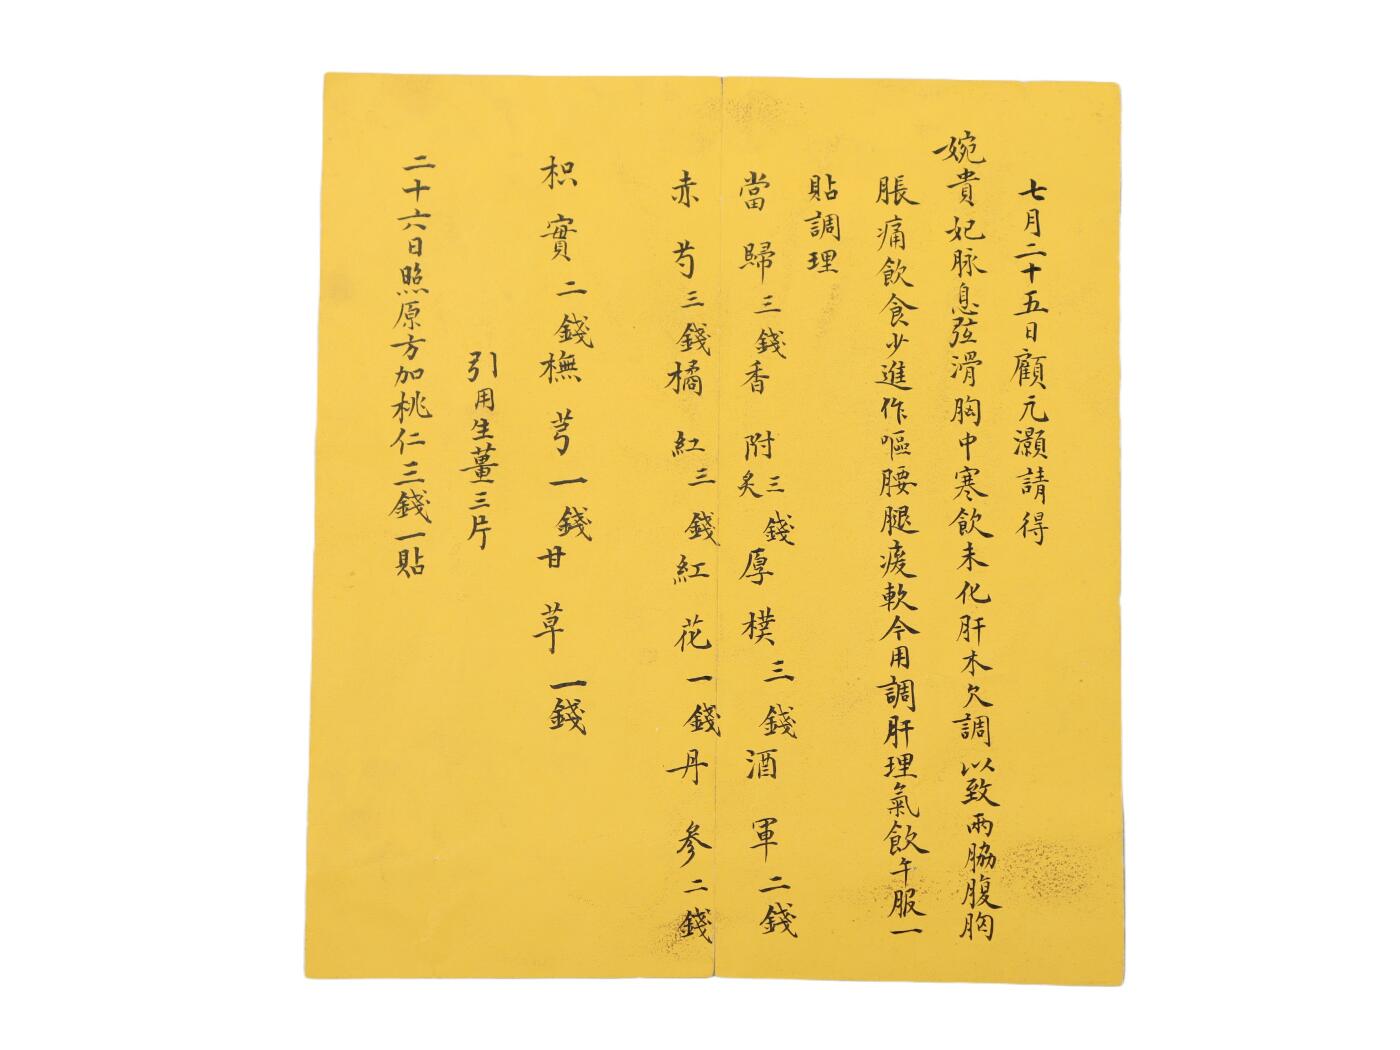 七月二十五日顧元灝請得
婉貴妃脉息弦滑胸中寒飲未化肝木欠調以致兩脇腹胸
脹痛飲食少進作嘔腰腿痠軟今用調肝理氣飲午服一
貼調理
當歸三錢香附炙三錢厚樸三錢酒軍二錢
赤芍三錢橘紅三錢紅花一錢丹參二錢
枳實二錢橆芎一錢甘草一錢
引用生薑三片
二十六日照原方加桃仁三錢一貼